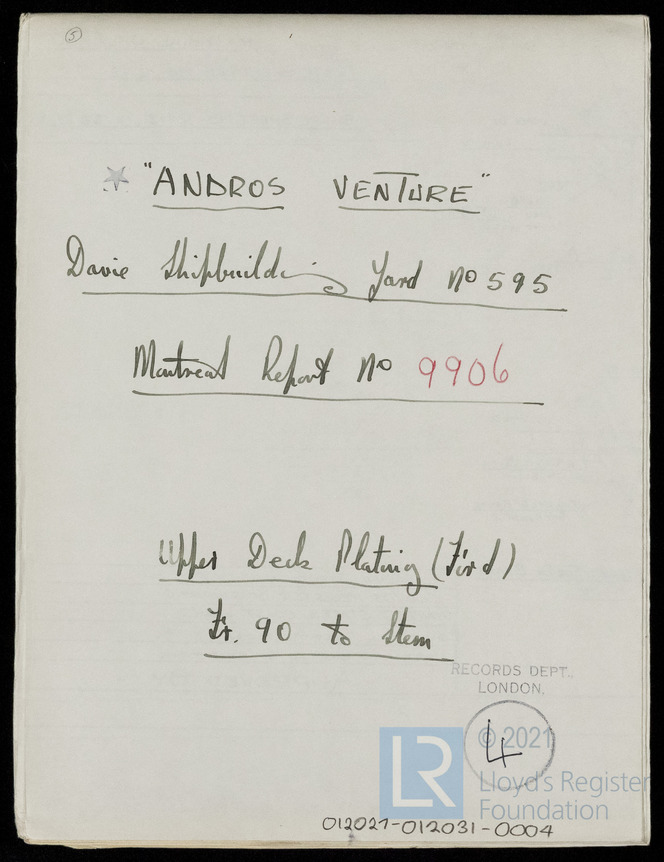 5
"ANDROS VENTURE"
Davie Shipbuilding Yard No 595
Montreal Report No 9906
Upper Deck Plating (Fwd)
Fr. 90 to Stem
RECORDS DEPT.,
LONDON,
4
© 2021
LR
Lloyd's Register
Foundation
012027-012031-0004